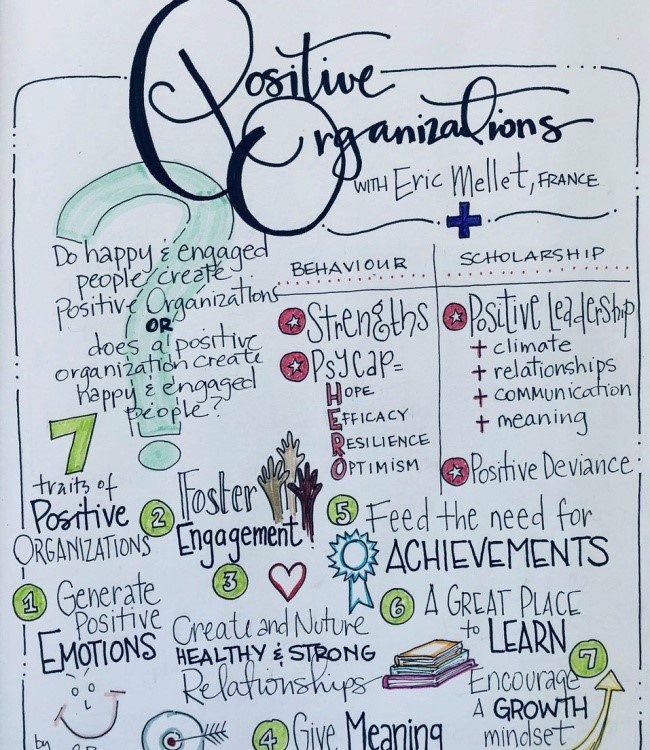 Positive
Organizations
WITH Eric Mellet, FRANCE
Do happy & engaged
people create
Positive Organizations
OR
does a positive
organization create
happy & engaged
people?
BEHAVIOUR
Strengths
PSYCAP=
HOPE
EFFICACY
RESILIENCE
OPTIMISM
SCHOLARSHIP
Positive Leadership
+ climate
+ relationships
+ communication
+ meaning
Positive Deviance
7
traits of
Positive
ORGANIZATIONS
1 Generate
Positive
EMOTIONS
by
2 Foster
Engagement!
3
Create and Nuture
HEALTHY & STRONG
Relationships
4 Give Meaning
5 Feed the need for
ACHIEVEMENTS
6 A GREAT PLACE
to LEARN
7
Encourage
A GROWTH
mindset